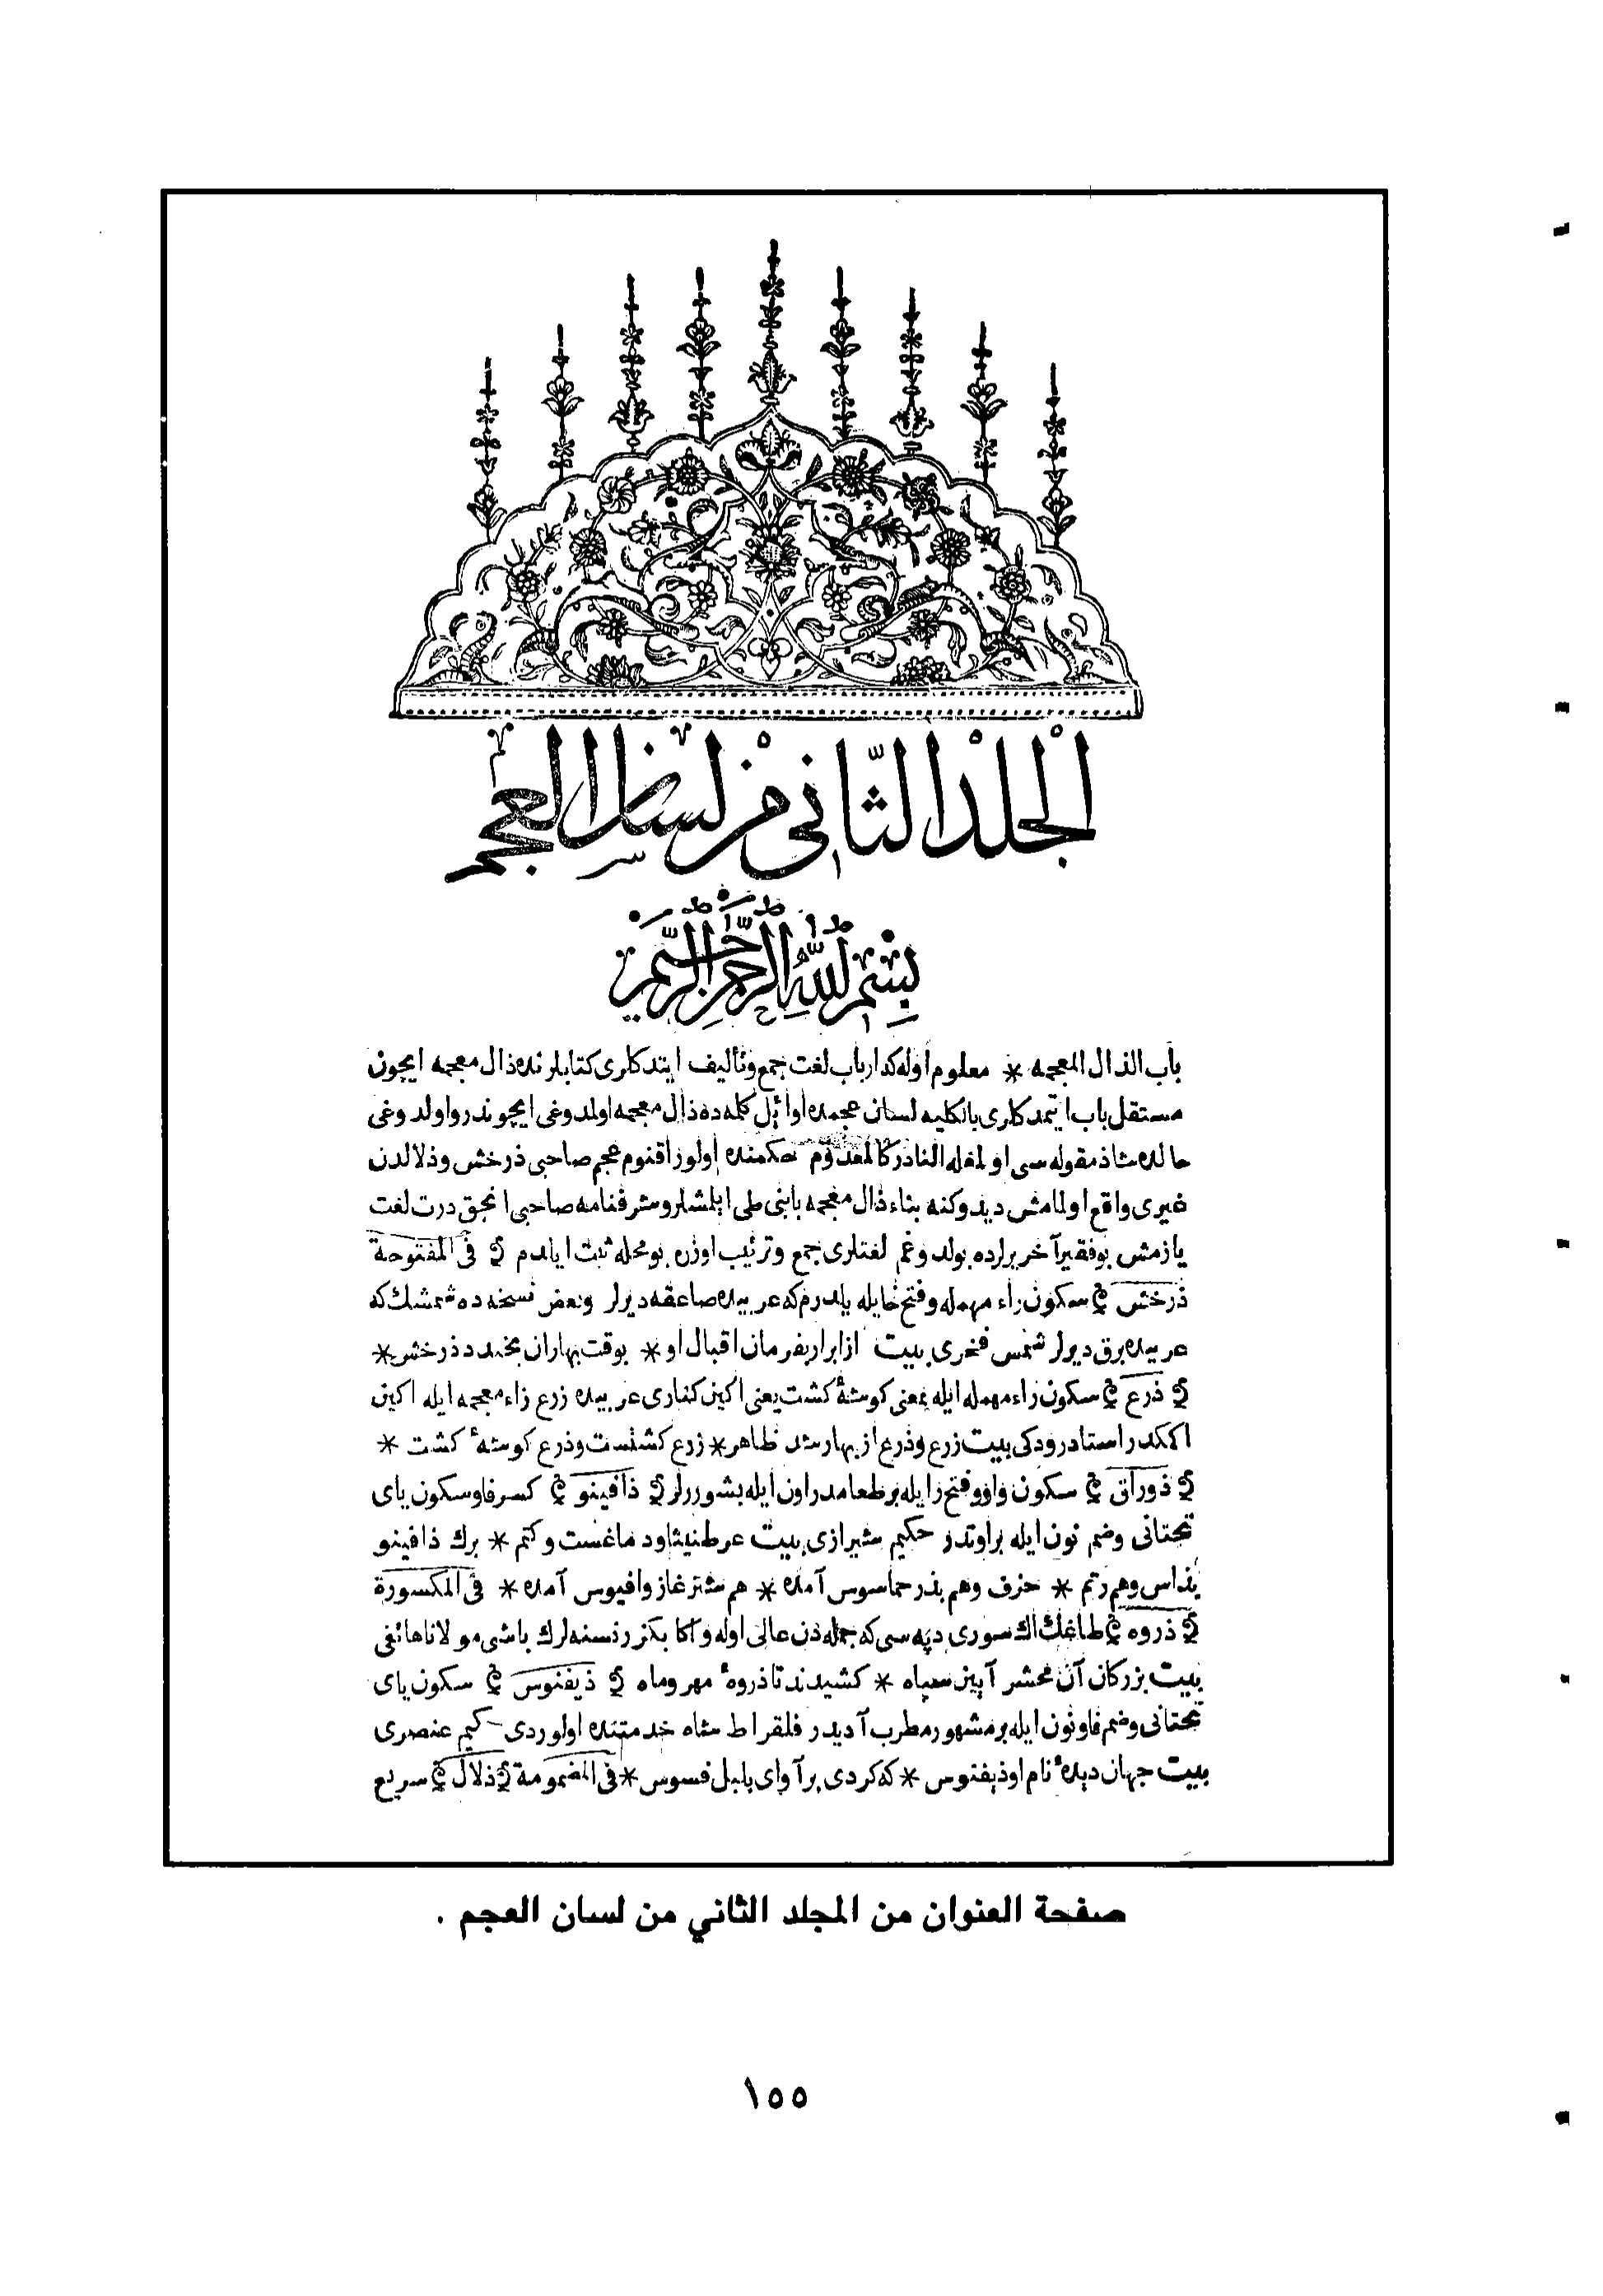 الجلد الثاني من لسان العجم
بسم الله الرحمن الرحيم
باب الذال المعجمه * معلوم اوله كه ارباب لغت جمع وتأليف ايتدكلرى كتابلرنده ذال معجمه ايچون
مستقل باب ايتمدكلرى بالكليه لسان عجمده اوائل كلمه ده ذال معجمه اولمدوغى ايچوندر واولدوغى
حالده شاذ مقوله سى اولمغله النادر كالمعدوم حكمنده اولور اقنوم عجم صاحبى ذرخش وذلالدن
غيرى واقع اولمامش ديدوكنه بناء ذال معجمه بابنى طى ايلمشلر وشرفنامه صاحبى انجق درت لغت
يازمش بو فقير آخر يرلرده بولدوغم لغتلرى جمع وترتيب اوزره بو محله ثبت ايلدم في المفتوحة
ذرخش سكون راء مهمله وفتح خايله يلدرم كه عربيده صاعقه ديرلر وبعض نسخه ده شمشك كه
عربيده برق ديرلر شمس فخرى بيت از ابرار بفرمان اقبال او * بوقت بهاران بخندد ذرخش *
ذرع سكون راء مهمله ايله بمعنى كوشۀ كشت يعنى اكين كنارى عربيده زرع زاء معجمه ايله اكين
اكمكدر استاد رودكى بيت زرع وذرع از بهار شد ظاهر * زرع كشتست وذرع كوشۀ كشت *
ذوراق سكون واو وفتح رايله بر طعامدر اون ايله بشوررلر ذافينو كسر فا وسكون ياى
تحتانى وضم نون ايله بر اوتدر حكيم شيرازى بيت عرطنيثا ود ماغست وكتم * برك ذافينو
بذاس وهم رتم * حزف وهم بذر حماسوس آمده * هم شتر غاز وافيوس آمده * في المكسورة
ذروه طاغك اك سورى دپه سى كه جمله دن عالى اوله واكا بكزر نسنه لرك باشى مولانا هاتفى
بيت بزركان آن محشر آيين سپاه * كشيدند تا ذروۀ مهر وماه ذيفنوس سكون ياى
تحتانى وضم فا ونون ايله بر مشهور مطرب آديدر فلقراط شاه خدمتنده اولوردى حكيم عنصرى
بيت جهان ديدۀ نام او ذيفنوس * كه كردى بر آواى بلبل فسوس * في المضمومة ذلال سريع
صفحة العنوان من المجلد الثاني من لسان العجم .
١٥٥